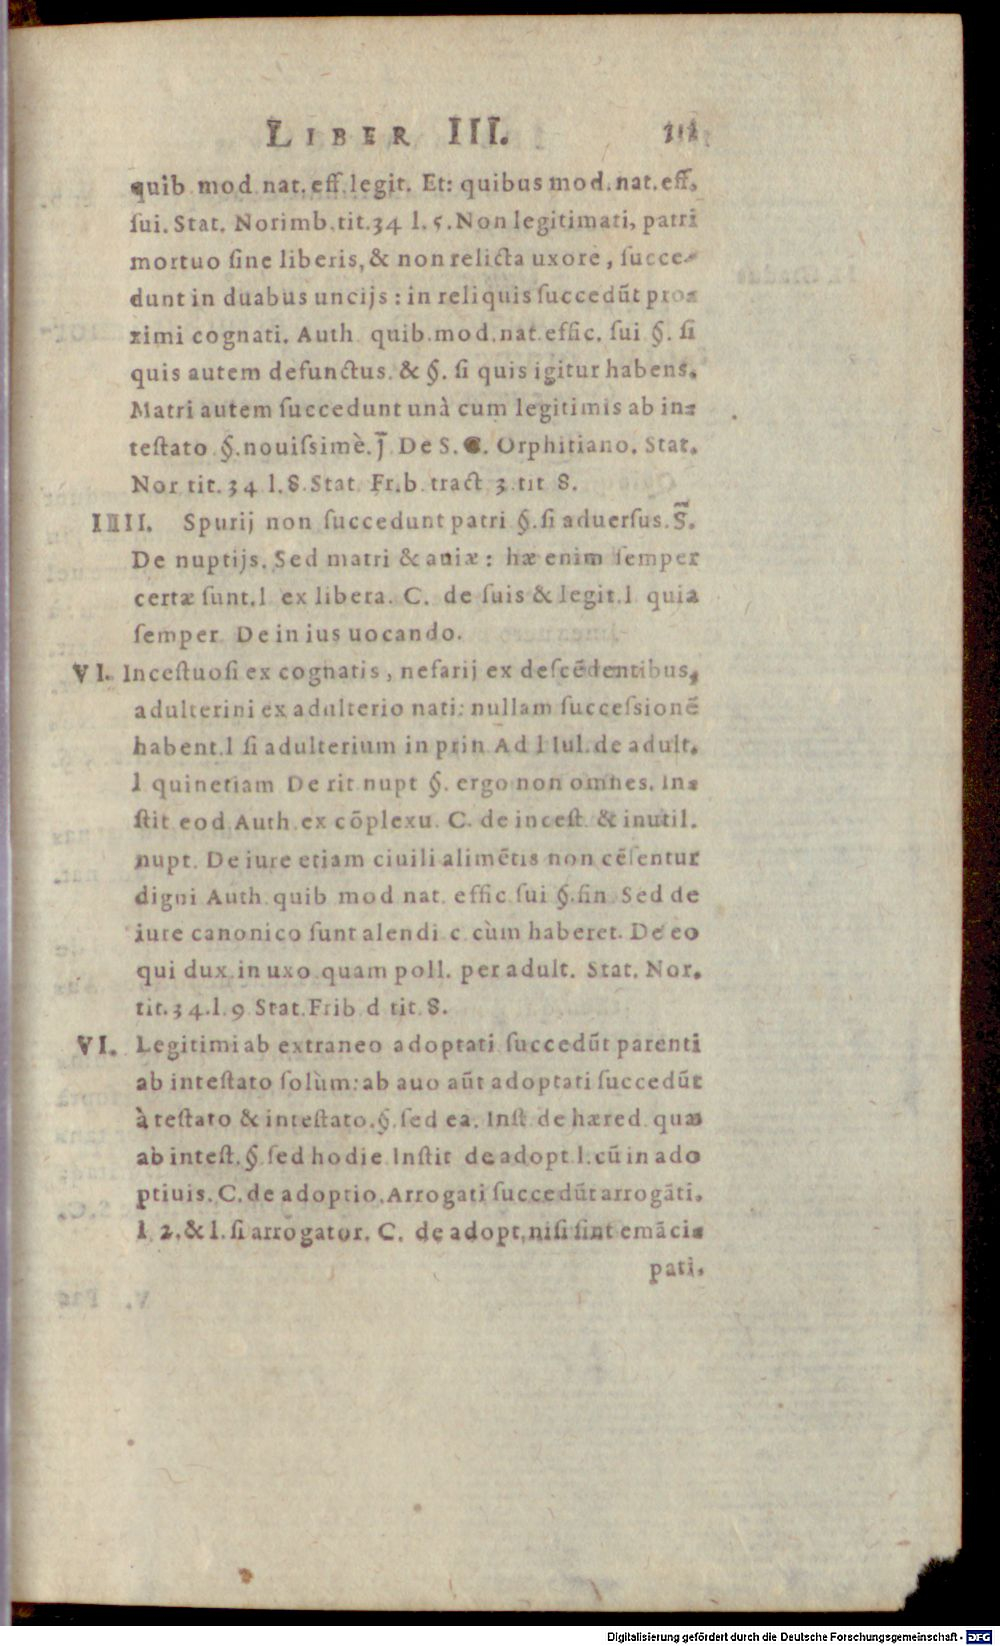 LIBER III.
quib mod nat. eff. legit. Et: quibus mod. nat. eff.
ſui. Stat. Norimb. tit. 34 l. 5. Non legitimati, patri
mortuo ſine liberis, & non relicta uxore, ſucce-
dunt in duabus uncijs: in reliquis ſuccedūt pro-
ximi cognati. Auth quib. mod. nat. effic. ſui §. ſi
quis autem defunctus. & §. ſi quis igitur habens.
Matri autem ſuccedunt unà cum legitimis ab in-
teſtato §. nouiſsimè. J̄ De S. C. Orphitiano. Stat.
Nor tit. 34 l. 8. Stat Fr. b tract 3 tit 8.
IIII. Spurij non ſuccedunt patri §. ſi aduerſus. S̄.
De nuptijs. Sed matri & auiæ: hæ enim ſemper
certæ ſunt. l ex libera. C. de ſuis & legit. l quia
ſemper De in ius uocando.
VI. Inceſtuoſi ex cognatis, nefarij ex deſcēdentibus,
adulterini ex adulterio nati: nullam ſucceſsionē
habent. l ſi adulterium in prin Ad l Iul. de adult.
l quinetiam De rit nupt §. ergo non omnes. In-
ſtit eod Auth. ex cōplexu. C. de inceſt & inutil.
nupt. De iure etiam ciuili alimētis non cēſentur
digni Auth. quib mod nat. effic ſui §. fin Sed de
iure canonico ſunt alendi c cùm haberet. De eo
qui dux. in uxo quam poll. per adult. Stat. Nor.
tit. 34. l. 9 Stat. Frib d tit 8.
VI. Legitimi ab extraneo adoptati ſuccedūt parenti
ab inteſtato ſolùm: ab auo aūt adoptati ſuccedūt
à teſtato & inteſtato. §. ſed ea. Inſt de hæred quæ
ab inteſt. § ſed hodie Inſtit de adopt l. cū in ado
ptiuis. C. de adoptio. Arrogati ſuccedūt arrogāti.
l 2. & l. ſi arrogator. C. de adopt. niſi ſint emāci-
pati.
Digitalisierung gefördert durch die Deutsche Forschungsgemeinschaft - DFG